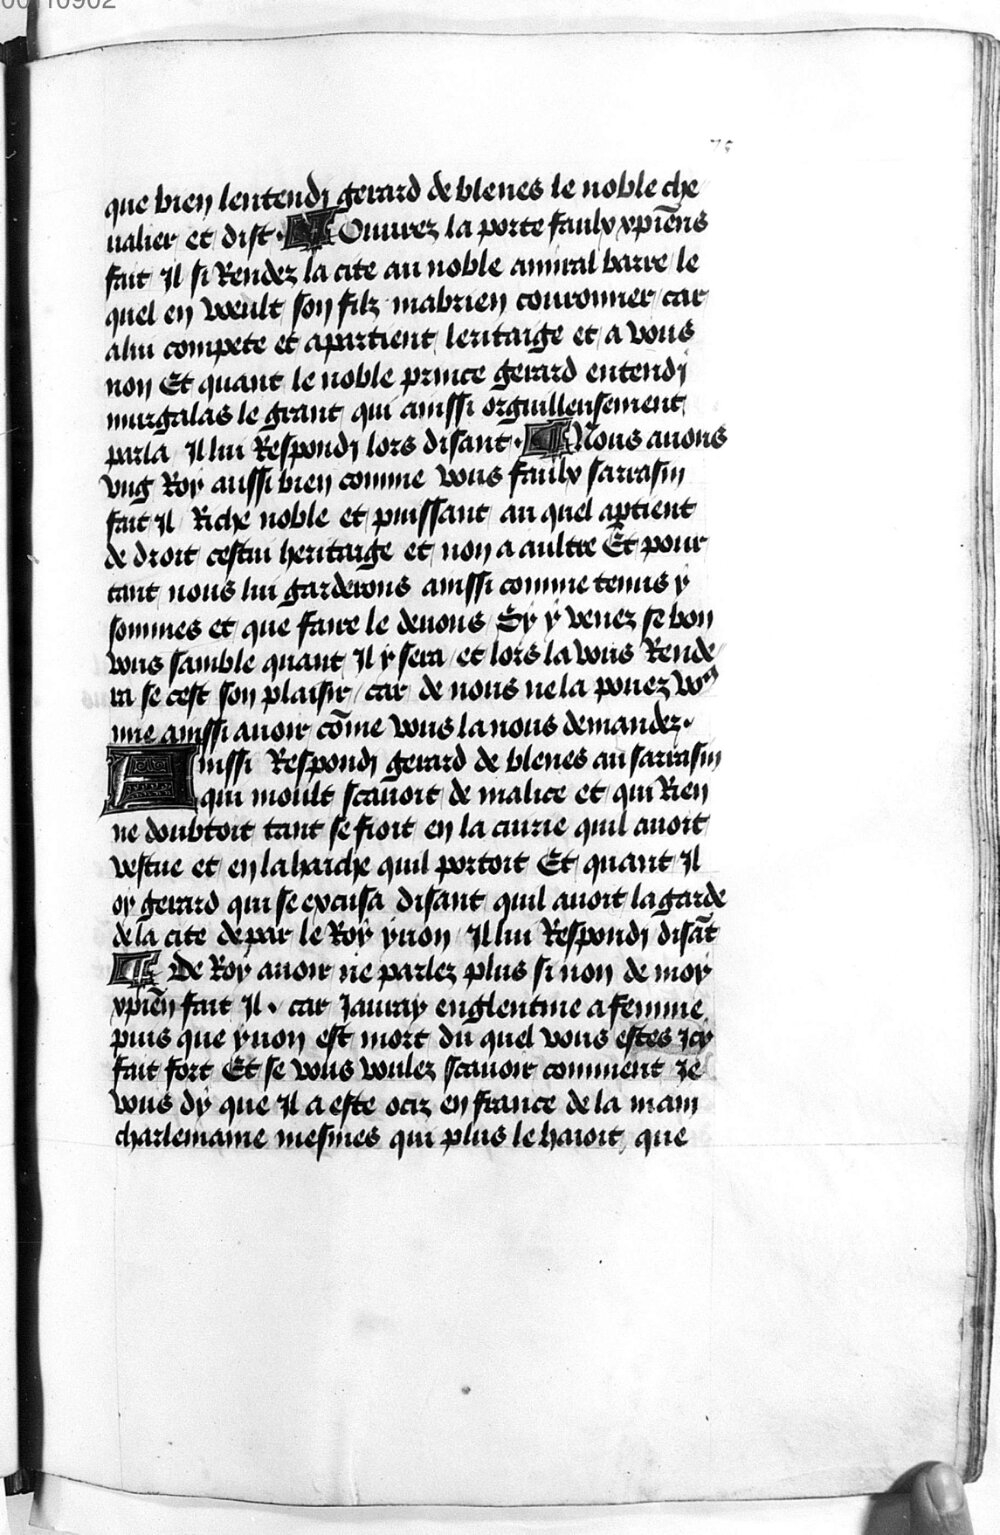 75
que bien lentendj gerard de blenes le noble che
ualier et dist · ¶ Ouurez la porte faulx xpiēns
fait Il si Rendez la cite au noble amiral barre le
quel en veult son filz mabrien couronner car
a lui compete et apartient leritaige et a vous
non Et quant le noble prince gerard entendj
murgalas le grant qui ainssi orguilleusement
parla Il lui Respondj lors disant · ¶ Nous auons
vng Roy aussi bien comme vous faulx sarrasin
fait Il Riche noble et puissant au quel aptient
de droit cestui heritaige et non a aultre Et pour
tant nous lui garderons ainssi comme tenus y
sommes et que faire le deuons Sy y venez se bon
vous samble quant Il y sera et lors la vous Rende
ra se cest son plaisir car de nous ne la pouez vo⁹
mie ainssi auoir cōme vous la nous demandez ·
Ainssi Respondj gerard de blenes au sarrasin
qui moult scauoit de malice et qui Rien
ne doubtoit tant se fioit en la cuirie quil auoit
vestue et en la hache quil portoit Et quant Il
oy gerard qui se excusa disant quil auoit la garde
de la cite de par le Roy yuon Il lui Respondj disāt
¶ De Roy auoir ne parlez plus si non de moy
xpiēn fait Il · car Jauray englentine a femme
puis que yuon est mort du quel vous estes Icy
fait fort Et se vous voulez scauoir comment Je
vous dy que Il a este ociz en france de la main
charlemaine mesmes qui plus le haioit que